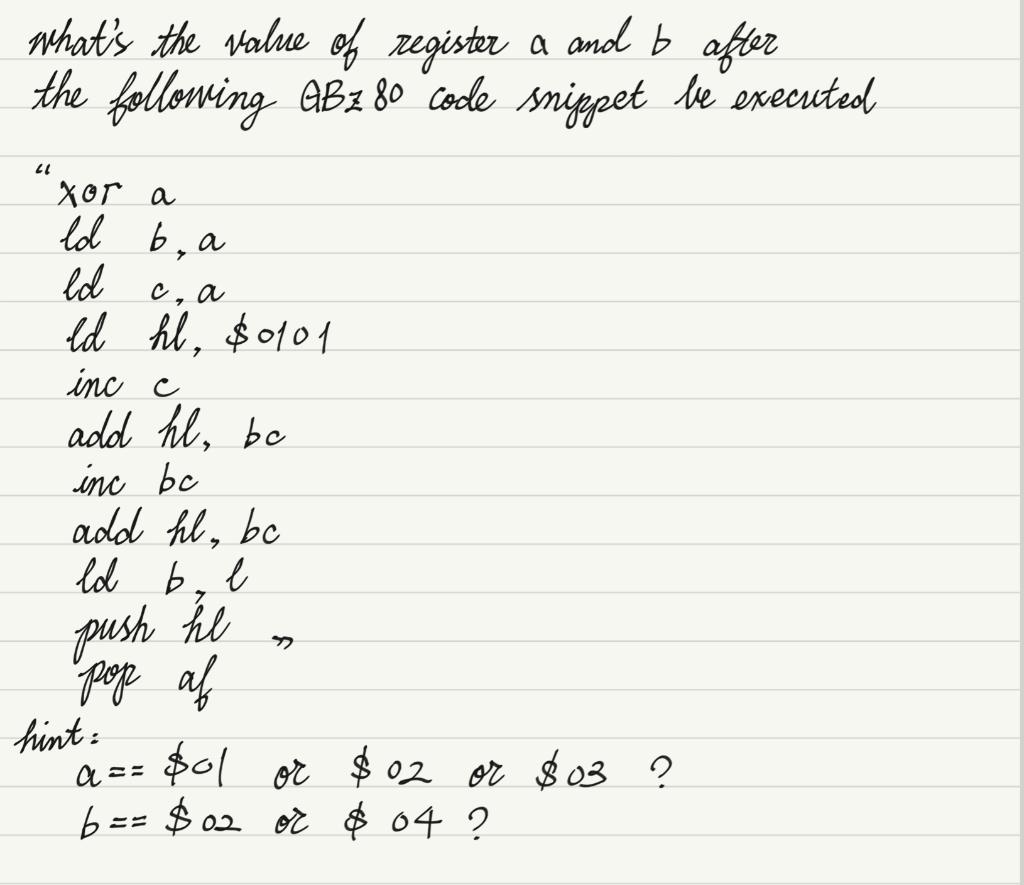 what's the value of register a and b after
the following GBz80 code snippet be executed
“xor a
ld b, a
ld c, a
ld hl, $0101
inc c
add hl, bc
inc bc
add hl, bc
ld b, l
push hl „
pop af
hint:
a== $01 or $02 or $03 ?
b== $02 or $04 ?